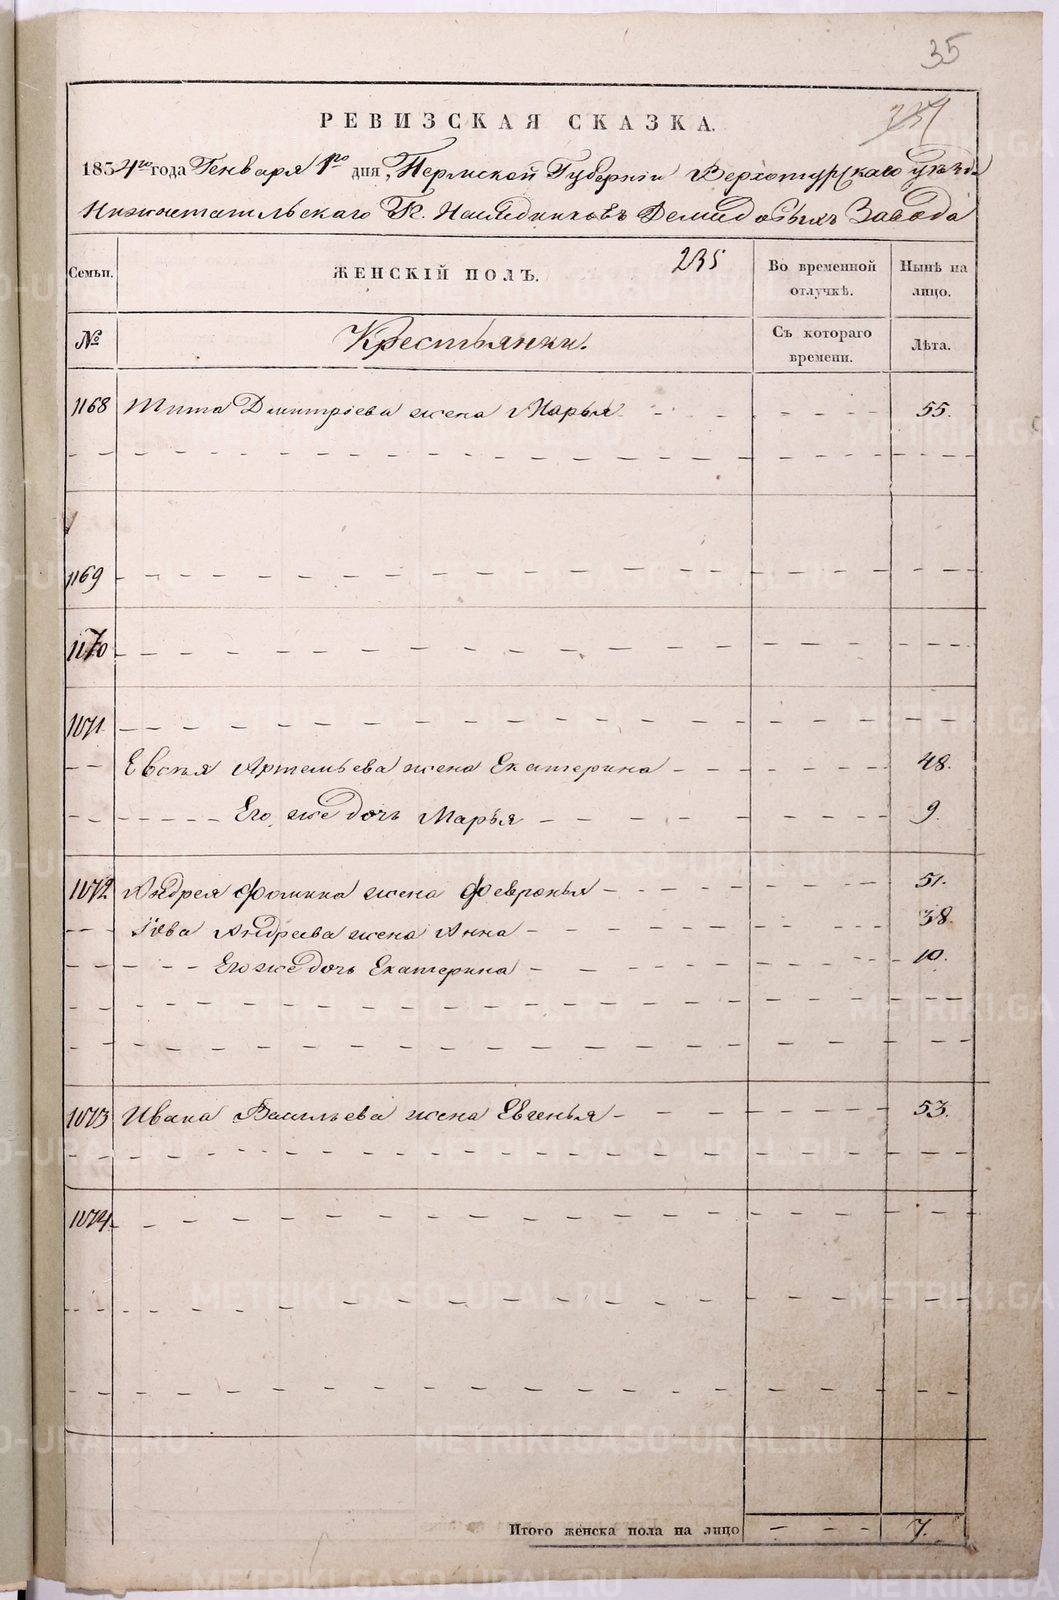 35
237
РЕВИЗСКАЯ СКАЗКА.
1854го года Генваря 1го дня, Пермской Губернiи Верхотурскаго уѣзда
Нижнетагильскаго Г. Наслѣдниковъ Демидовыхъ Завода
Семьи. ЖЕНСКIЙ ПОЛЪ. 235 Во временной отлучкѣ. Нынѣ на лицо.
№ Крестьянки. Съ котораго времени. Лѣта.
1168 Тита Дмитрiева жена Марья 55.
1169
1170
1071
Евсѣя Артемьева жена Екатерина 48.
Его же дочь Марья 9.
1072 Андрея Фомина жена Февронья 51.
Iова Андреева жена Анна 38.
Его же дочь Екатерина 10.
1073 Ивана Васильева жена Евгенья 53.
1074
Итого женска пола на лицо 7.
METRIKI.GASO-URAL.RU